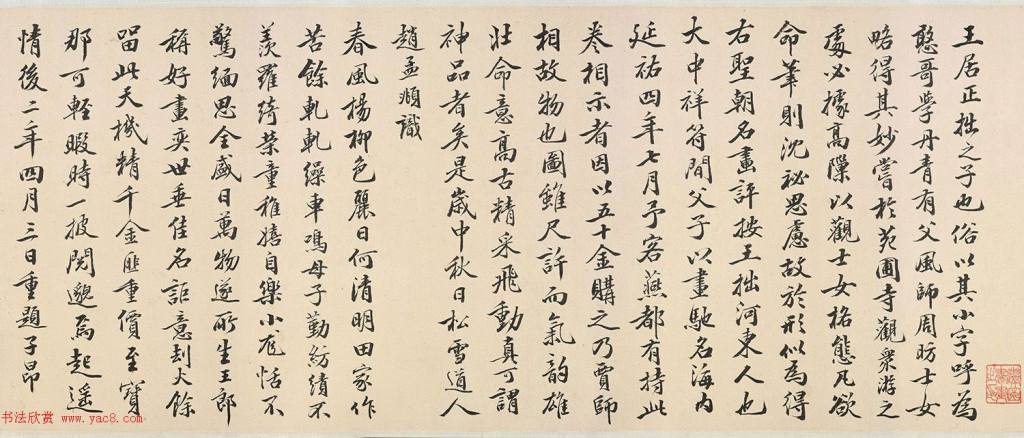 王居正拙之子也俗以其小字呼為
憨哥學丹青有父風師周昉士女
略得其妙嘗於苑圃寺觀衆游之
處必據高隙以觀士女格態凡欲
命筆則沈祕思慮故於形似為得
右聖朝名畫評按王拙河東人也
大中祥符間父子以畫馳名海内
延祐四年七月予客燕都有持此
卷相示者因以五十金購之乃賈師
相故物也圖雖尺許而氣韵雄
壯命意高古精采飛動真可謂
神品者矣是歲中秋日松雪道人
趙孟頫識
春風楊柳色麗日何清明田家作
苦餘軋軋繰車鳴母子勤紡績不
羨羅綺榮童稚嬉自樂小厖恬不
驚緬思全盛日萬物遂所生王郎
稱好畫奕世垂佳名詎意刦火餘
留此天機精千金匪重價至寶
那可輕暇時一披閱邈焉起遥
情後二年四月三日重題子昂
书法欣赏 www.yac8.com